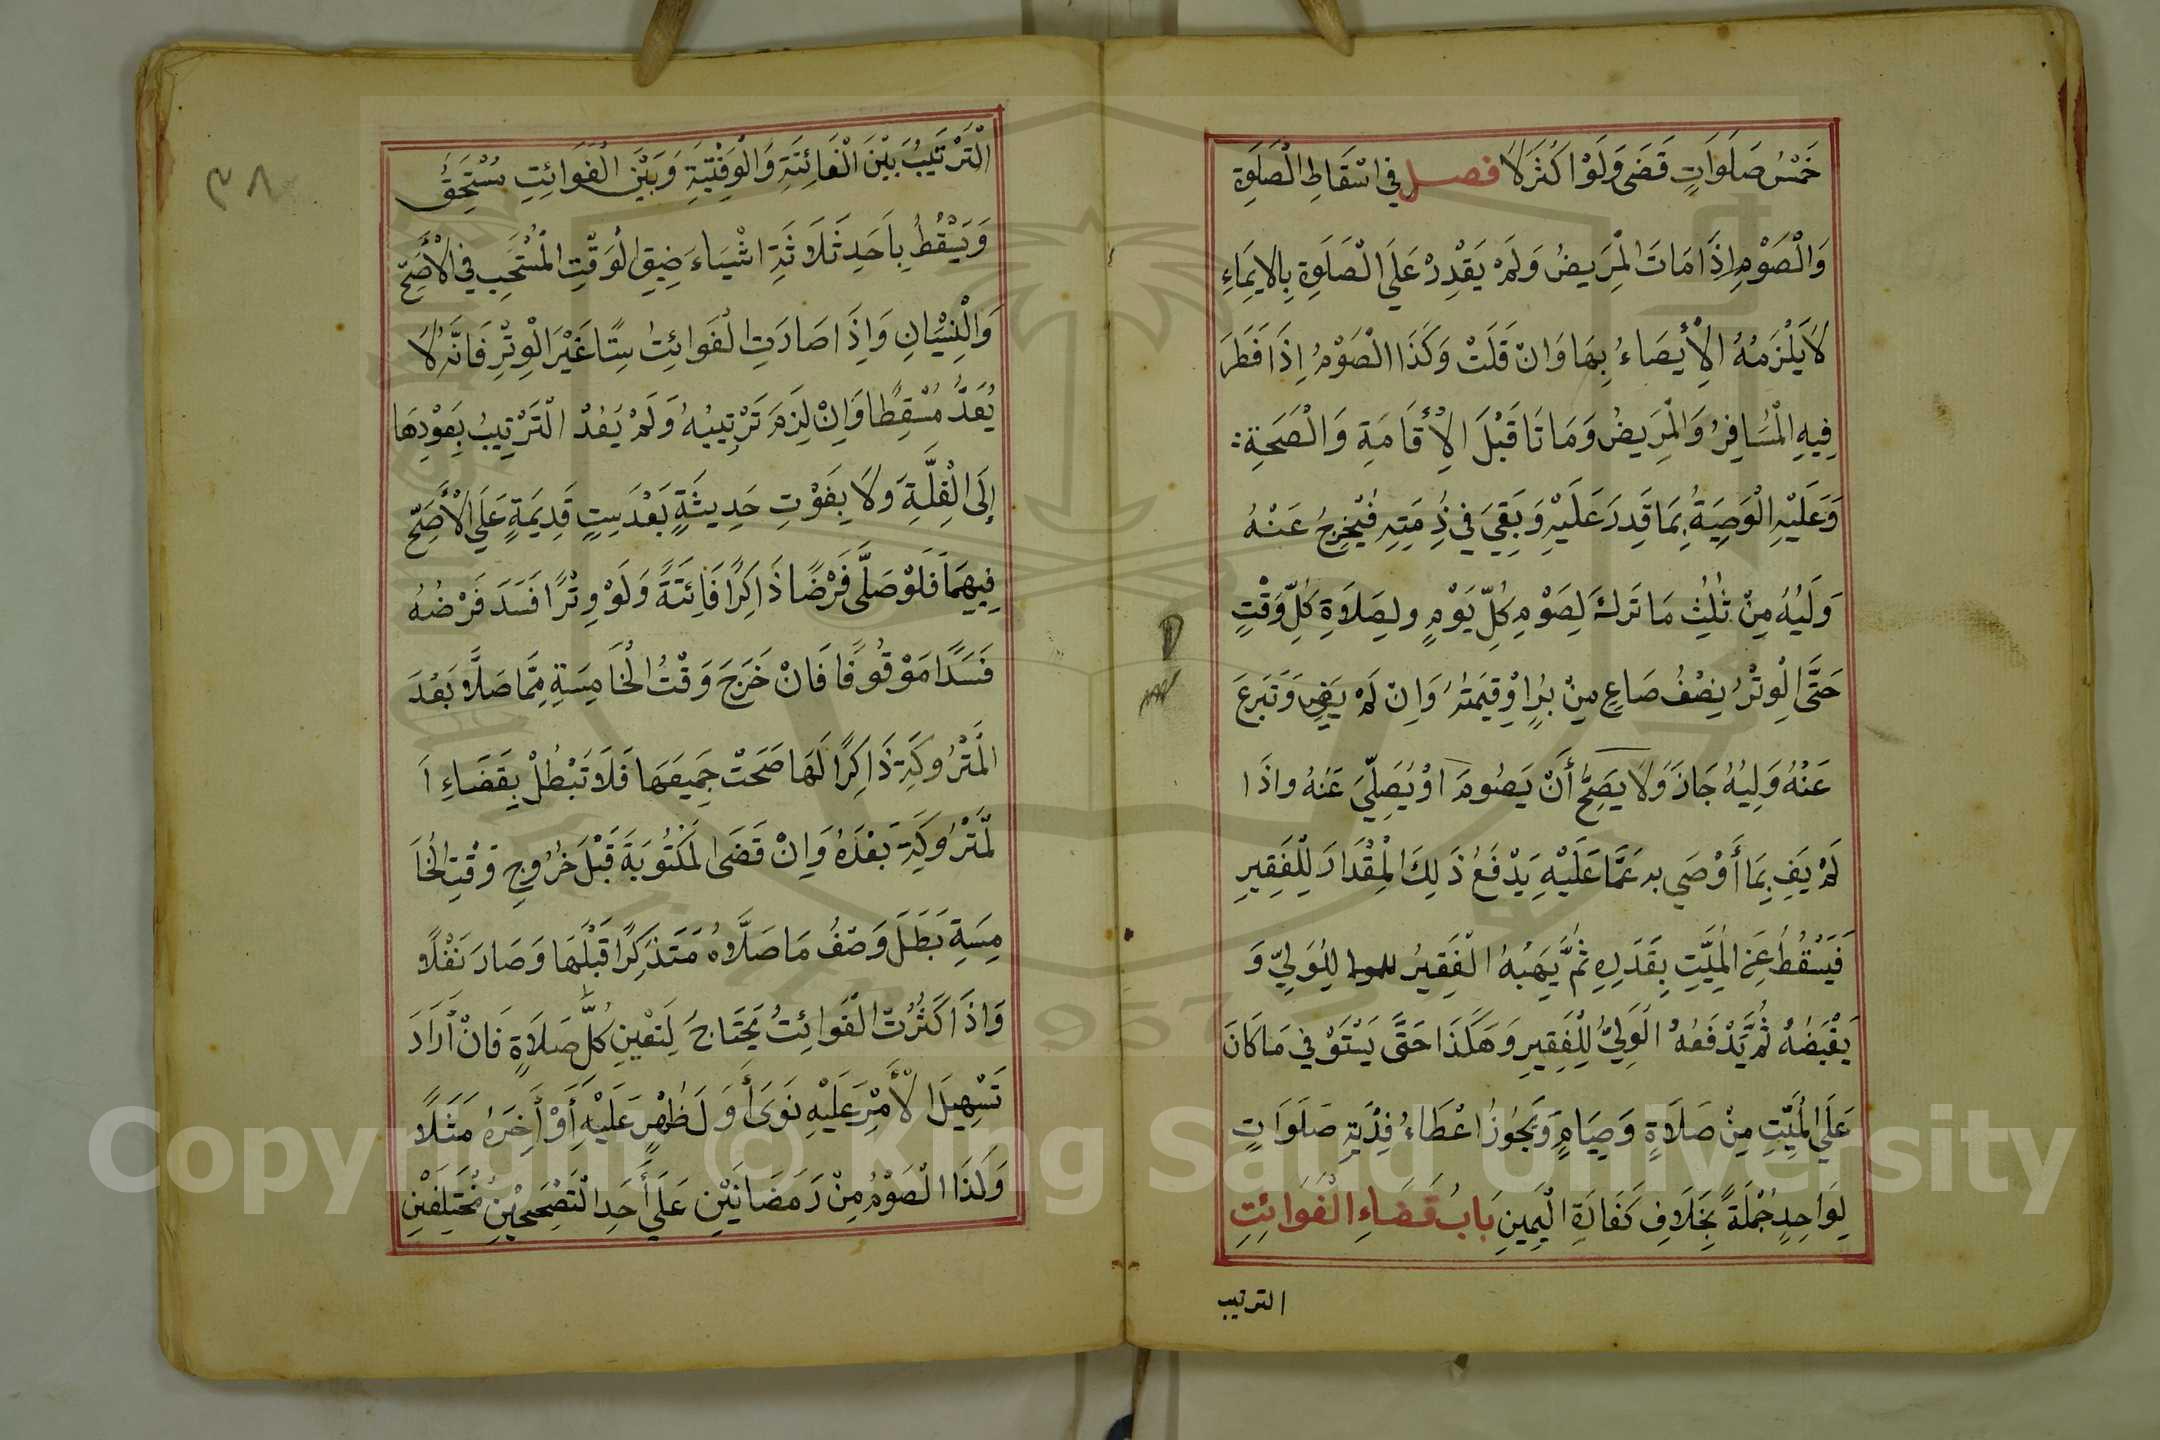 خَمْسُ صَلَوَاتٍ قَضَى وَلَوْ اكْثَرَ لَا فصل في اسْقَاطِ الْصَلَوةِ
وَالْصَوْمِ اِذَا مَاتَ الْمَرِيضُ وَلَمْ يَقْدِرْ عَلَى الْصَلَوةِ بِالايمَاءِ
لَا يَلْزَمُهُ الْأِيصَاءُ بِهَا وَانْ قَلَّتْ وَكَذَا الْصَوْمُ اِذَا فَطَرَ
فِيهِ الْمُسَافِرُ وَالْمَرِيضُ وَمَاتَا قَبْلَ الْأِقَامَةِ وَالْصَحَةِ
وَعَلَيْهِ الْوَصِيَةُ بِمَا قَدِرَ عَلَيْهِ وَبَقِيَ في ذِمَتِهِ فَيُخْرِجُ عَنْهُ
وَلِيُهُ مِنْ ثُلِثِ مَا تَرَكَ لِصَوْمِ كُلِّ يَوْمٍ ولِصَلَاوَةِ كُلِّ وَقْتٍ
حَتَّى الْوِتْرُ نِصْفُ صَاعٍ مِنْ بُرٍ اوْ قِيمَتُهُ وَاِنْ لَمْ يُوْصِ وَتَبَرعَ
عَنْهُ وَلِيُهُ جَازَ وَلَا يَصِحُّ أَنْ يَصُومَ اوْ يُصَلِّيَ عَنْهُ واذَا
لَمْ يَفِ بِمَا أَوْصَي بِهِ عَمَّا عَلَيْهِ يَدْفَعُ ذَلِكَ الْمِقْدَارَ لِلْفَقِيرِ
فَيَسْقُطُ عَنِ الْمَيِّتِ بِقَدَرِهِ ثُمَّ يَهَبُهُ الْفَقِيرُ لِلْوَلِيِّ وَ
يَقْبَضُهُ ثُمَّ يَدْفَعُهُ الْوَلِيُّ لِلْفَقِيرِ وَهَكَذَا حَتَّى يَسْتَوْفي مَا كَانَ
عَلَى الْمَيِّتِ مِنْ صَلَاةٍ وَصِيَامٍ وَيَجُوزُ اعْطَاءُ فِدْيَةِ صَلَوَاتٍ
لِوَاحِدٍ جُمْلَةً بِخَلَافِ كَفَارَةِ الْيَمِينِ بَابُ قَضَاءِ الْفَوَائِتِ
الترتيب
٣٨
الْتَرْتِيبُ بَيْنَ الْفَائِتَةِ وَالْوَقْتِيَةِ وَبَيْنَ الْفَوَائِتِ مُسْتَحِقُ
وَيَسْقُطُ بِاَحَدِ ثَلَاثَةِ اشْيَاءَ ضِيقِ الْوَقْتِ الْمُسْتَحَبِ في الْأَصَحِّ
وَالْنِسْيَانِ وَاِذَا صَارَتِ الْفَوَائِتُ سِتًا غَيْرَ الْوِتْرِ فَانَّهُ لَا
يُعَدُّ مُسْقِطًا وَاِنْ لَزِمَ تَرْتِيبُهُ وَلَمْ يَعُدْ الْتَرْتِيبُ بِعَوْدِهَا
إِلَى الْقِلَّةِ وَلَا بِفَوْتِ حَدِيثَةٍ بَعْدَ سِتٍ قَدِيمَةٍ عَلَى الْأَصَحِّ
فِيهِمَا فَلَوْ صَلَّى فَرْضًا ذَاكِرًا فَائِتَةً وَلَوْ وِتْرًا فَسَدَ فَرْضُهُ
فَسَدًا مَوْقُوفًا فَانْ خَرَجَ وَقْتُ الْخَامِسَةِ مِمَّا صَلَّا بَعْدَ
الْمَتْرُوكَةِ ذَاكِرًا لَهَا صَحَتْ جَمِيعَهَا فَلَا تَبْطُلْ بِقَضَاءِ اَ
لْمَتْرُوكَةِ بَعْدَهُ وَاِنْ قَضَى الْمَكْتُوبَةَ قَبْلَ خُرُوجِ وَقْتِ الْخَا
مِسَةِ بَطَلَ وَصْفُ مَا صَلَّاهُ مَتَذَكِرًا قَبْلَهَا وَصَارَ نَفْلًا
وَاذَا كَثُرَتْ الْفَوَائِتُ يَحْتَاجَ لِتَعْيِنِ كُلِّ صَلَاةٍ فَانْ أَرَادَ
تَسْهِيلَ الْأَمْرِ عَلَيْهِ نَوَى أَوَلَ ظُهْرٍ عَلَيْهِ أَوْ أَخِرَهُ مَثَلًا
وَكَذَا الْصَوْمُ مِنْ رَمَضَانَيْنِ عَلَى أَحَدِ الْتَصْحِيحَيْنِ مُخْتَلِفَيْنِ
Copyright © King Saud University
1957